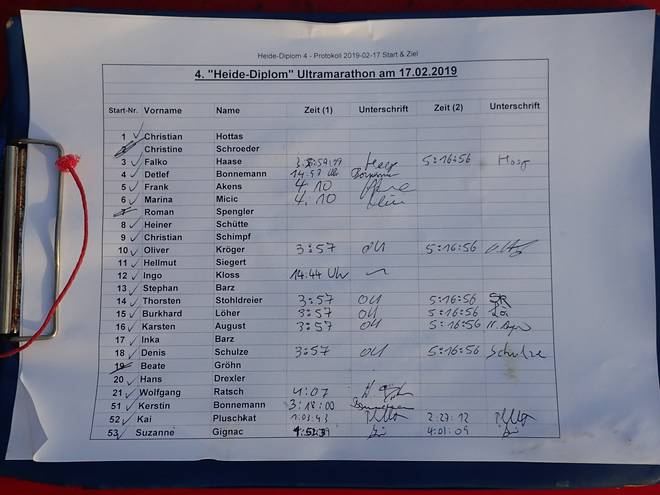 Heide-Diplom 4 - Protokoll 2019-02-17 Start & Ziel
4. "Heide-Diplom" Ultramarathon am 17.02.2019
Start-Nr. Vorname Name Zeit (1) Unterschrift Zeit (2) Unterschrift
1 Christian Hottas
2 Christine Schroeder
3 Falko Haase 5:16:56
4 Detlef Bonnemann 14:57 Uhr
5 Frank Akens 4.10
6 Marina Micic 4.10
7 Roman Spengler
8 Heiner Schütte
9 Christian Schimpf
10 Oliver Kröger 3:57 5:16:56
11 Hellmut Siegert
12 Ingo Kloss 14:44 Uhr
13 Stephan Barz
14 Thorsten Stohldreier 3:57 5:16:56
15 Burkhard Löher 3:57 5:16:56
16 Karsten August 3:57 5:16:56
17 Inka Barz
18 Denis Schulze 3:57 5:16:56 Schulze
19 Beate Gröhn
20 Hans Drexler
21 Wolfgang Ratsch 4:07
51 Kerstin Bonnemann 3:18:00
52 Kai Pluschkat 1:03:43 2:27:12
53 Suzanne Gignac 4:01:09